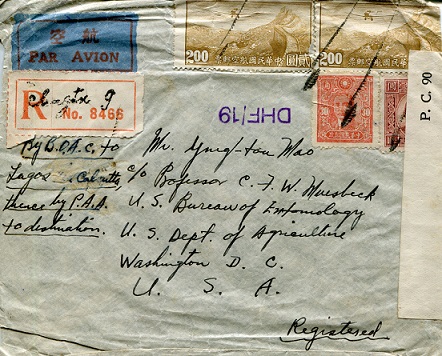 空 航
PAR AVION
2.00
2.00
票郵空航國民華中
票郵空航國民華中
R
No. 8466
DHF/19
P. C. 90
30
By B.O.A.C. to
Lagos & Calcutta
thence by P.A.A.
to destination.
Mr. Ying-tou Mao
c/o Professor C. F. W. Muesebeck
U. S. Bureau of Entomology
U. S. Dept. of Agriculture
Washington D. C.
U. S. A.
Registered